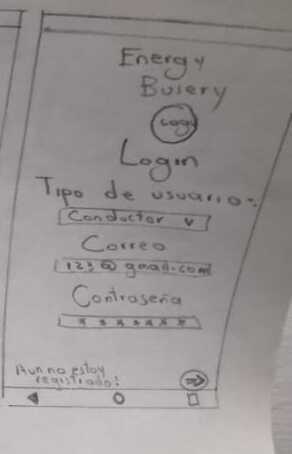 Energy
Buiery
Logo
Login
Tipo de usuario:
Conductor v
Correo
123@gmail.com
Contraseña
*******
Aun no estoy
registrado!